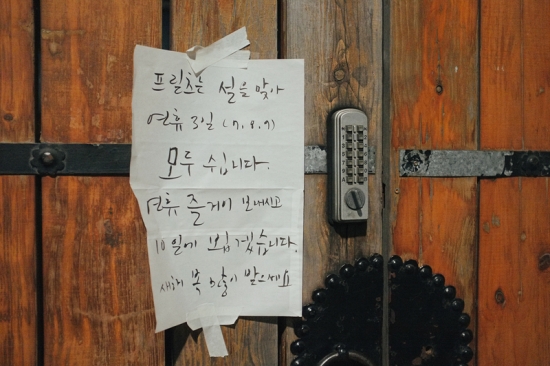 프릳츠는 설을 맞아
연휴 3일 (7.8.9)
모두 쉽니다.
연휴 즐거이 보내시고
10일에 뵙겠습니다.
새해 복 많이 받으세요